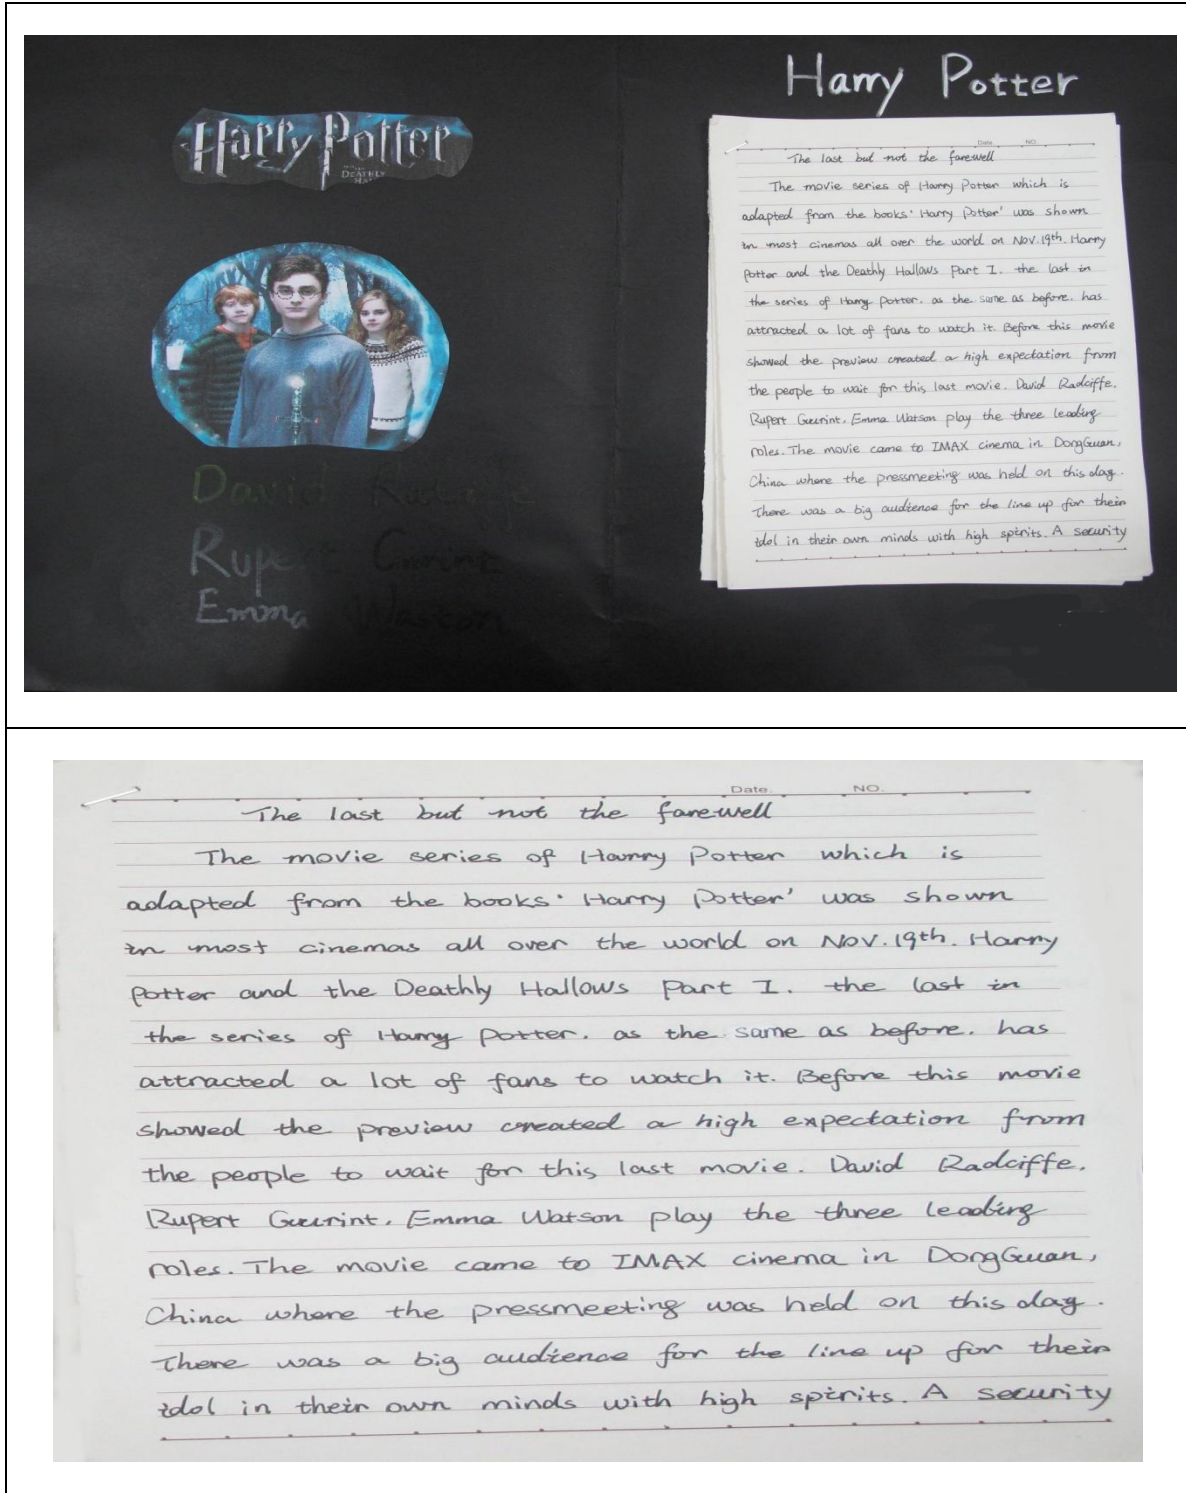 Harry Potter
DEATHLY
HAL
David
Rupe
Emma Waston
Harry Potter
Date. NO.
The last but not the farewell
The movie series of Harry Potter which is
adapted from the books·Harry Potter' was shown
in most cinemas all over the world on Nov.19th. Harry
Potter and the Deathly Hallows Part I. the last in
the series of Harry Potter. as the same as before. has
attracted a lot of fans to watch it. Before this movie
showed the preview created a high expectation from
the people to wait for this last movie. David Radciffe.
Rupert Guurint. Emma Watson play the three leading
roles. The movie came to IMAX cinema in DongGuan,
China where the pressmeeting was held on this day.
There was a big audience for the line up for their
idol in their own minds with high spirits. A security
Date. NO.
The last but not the farewell
The movie series of Harry Potter which is
adapted from the books·Harry Potter' was shown
in most cinemas all over the world on Nov.19th. Harry
Potter and the Deathly Hallows Part I. the last in
the series of Harry Potter. as the same as before. has
attracted a lot of fans to watch it. Before this movie
showed the preview created a high expectation from
the people to wait for this last movie. David Radciffe.
Rupert Guurint. Emma Watson play the three leading
roles. The movie came to IMAX cinema in DongGuan,
China where the pressmeeting was held on this day.
There was a big audience for the line up for their
idol in their own minds with high spirits. A security